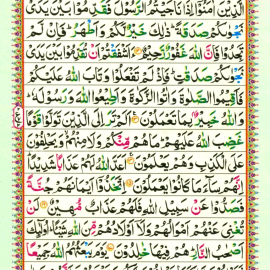 الَّذِيْنَ اٰمَنُوْۤا اِذَا نَاجَيْتُمُ الرَّسُوْلَ فَقَدِّمُوْا بَيْنَ يَدَيْ
نَجْوٰىكُمْ صَدَقَةً ؕ ذٰلِكَ خَيْرٌ لَّكُمْ وَاَطْهَرُ ؕ فَاِنْ لَّمْ
تَجِدُوْا فَاِنَّ اللّٰهَ غَفُوْرٌ رَّحِيْمٌ ءَاَشْفَقْتُمْ اَنْ تُقَدِّمُوْا بَيْنَ يَدَيْ
نَجْوٰىكُمْ صَدَقٰتٍ ؕ فَاِذْ لَمْ تَفْعَلُوْا وَتَابَ اللّٰهُ عَلَيْكُمْ
فَاَقِيْمُوا الصَّلٰوةَ وَاٰتُوا الزَّكٰوةَ وَاَطِيْعُوا اللّٰهَ وَرَسُوْلَهٗ ؕ
وَاللّٰهُ خَبِيْرٌۢ بِمَا تَعْمَلُوْنَ اَلَمْ تَرَ اِلَى الَّذِيْنَ تَوَلَّوْا قَوْمًا
غَضِبَ اللّٰهُ عَلَيْهِمْ ؕ مَا هُمْ مِّنْكُمْ وَلَا مِنْهُمْ ۙ وَيَحْلِفُوْنَ
عَلَى الْكَذِبِ وَهُمْ يَعْلَمُوْنَ اَعَدَّ اللّٰهُ لَهُمْ عَذَابًا شَدِيْدًا ؕ
اِنَّهُمْ سَآءَ مَا كَانُوْا يَعْمَلُوْنَ اِتَّخَذُوْۤا اَيْمَانَهُمْ جُنَّةً
فَصَدُّوْا عَنْ سَبِيْلِ اللّٰهِ فَلَهُمْ عَذَابٌ مُّهِيْنٌ لَنْ
تُغْنِيَ عَنْهُمْ اَمْوَالُهُمْ وَلَاۤ اَوْلَادُهُمْ مِّنَ اللّٰهِ شَيْـًٔا ؕ اُولٰٓئِكَ
اَصْحٰبُ النَّارِ ؕ هُمْ فِيْهَا خٰلِدُوْنَ يَوْمَ يَبْعَثُهُمُ اللّٰهُ جَمِيْعًا